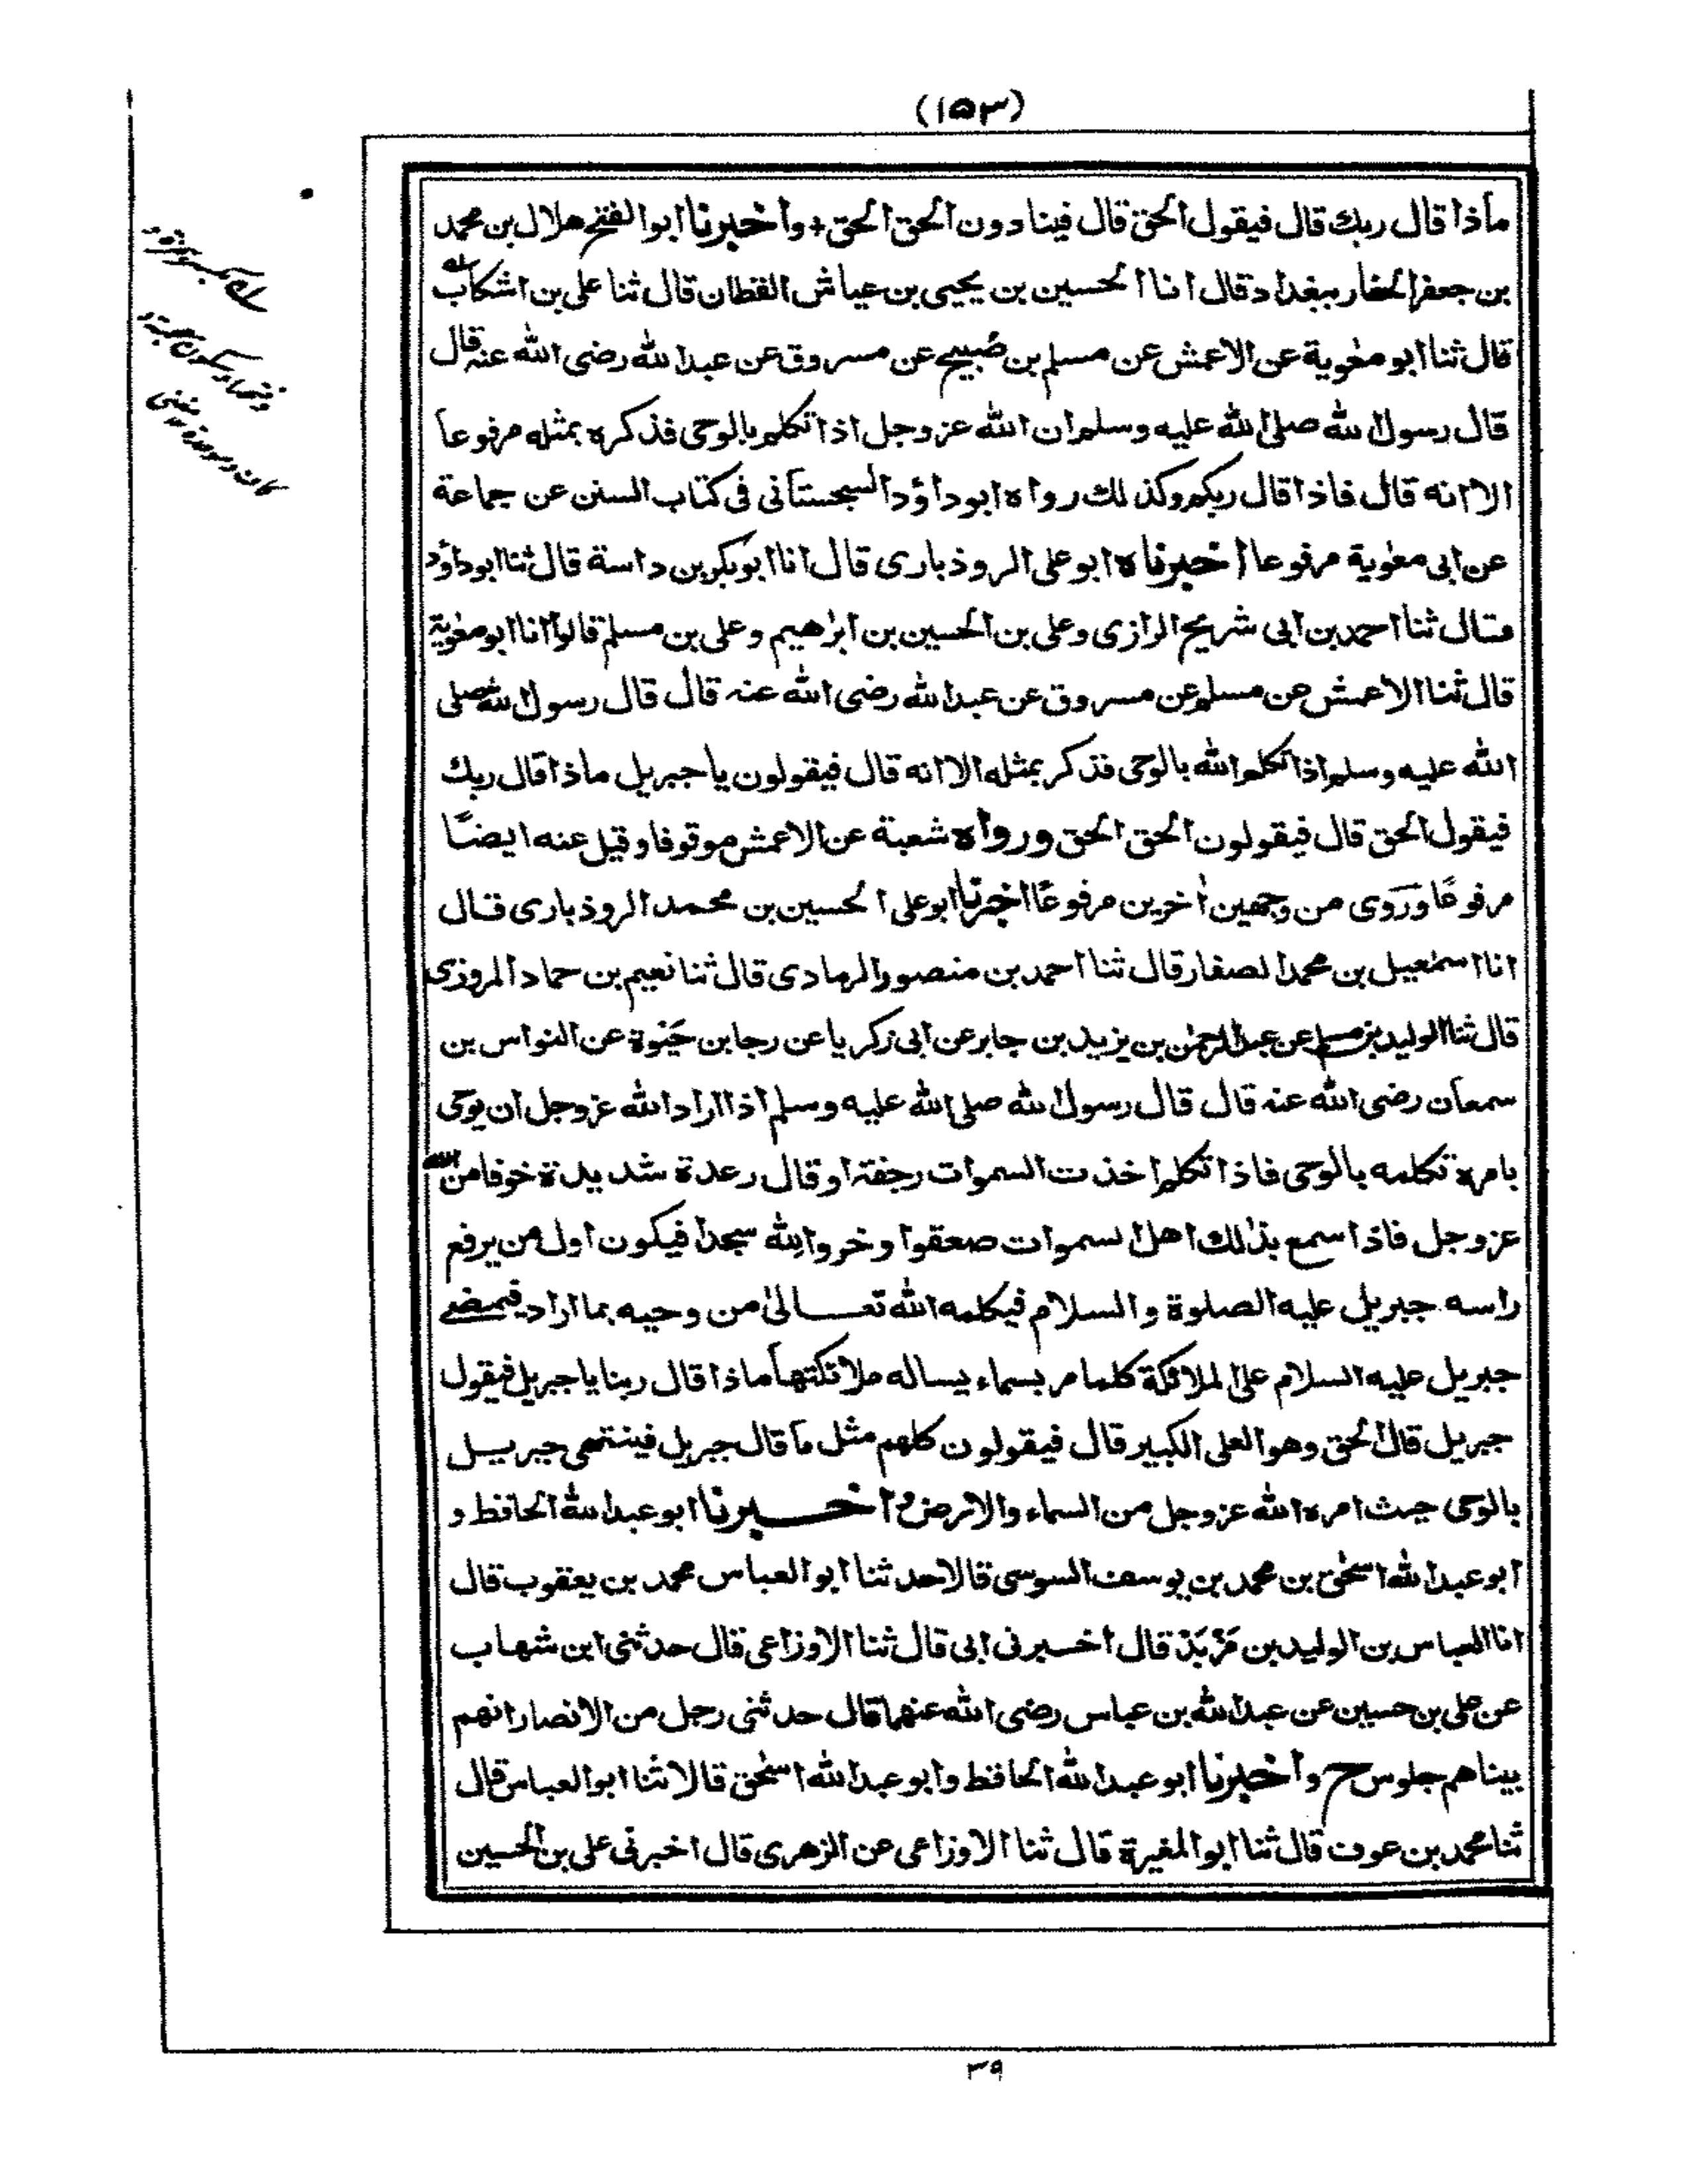 (١٥٣)
ماذا قال ربك قال فيقول الحق قال فينادون الحق الحق + واخبرنا ابوالفتح هلال بن محمد
بن جعفر الحفار ببغداد قال انا الحسين بن يحيى بن عياش القطان قال ثنا على بن اشكاب
قال ثنا ابو معٰوية عن الاعمش عن مسلم بن صُبيح عن مسروق عن عبدالله رضى الله عنه قال
قال رسول الله صلى الله عليه وسلم ان الله عزوجل اذا تكلم بالوحى فذكره بمثله مرفوعا
الا انه قال فاذا قال ربكم وكذلك رواه ابوداؤد السجستانى فى كتاب السنن عن جماعة
عن ابى معٰوية مرفوعا اخبرناه ابوعلى الروذبارى قال انا ابوبكر بن داسة قال ثنا ابوداؤد
قال ثنا احمد بن ابى شريح الرازى وعلى بن الحسين بن ابراهيم وعلى بن مسلم قالوا انا ابومعٰوية
قال ثنا الاعمش عن مسلم عن مسروق عن عبدالله رضى الله عنه قال قال رسول الله صلى
الله عليه وسلم اذا تكلم الله بالوحى فذكر بمثله الا انه قال فيقولون يا جبريل ماذا قال ربك
فيقول الحق قال فيقولون الحق الحق ورواه شعبة عن الاعمش موقوفا وقيل عنه ايضًا
مرفوعًا وَرَوى من وجهين اٰخرين مرفوعًا اخبرنا ابوعلى الحسين بن محمد الروذبارى قال
انا اسمٰعيل بن محمد الصفار قال ثنا احمد بن منصور الرمادى قال ثنا نعيم بن حماد المروزى
قال ثنا الوليد بن مسلم عن عبد الرحمٰن بن يزيد بن جابر عن ابى زكريا عن رجا بن حَيٰوة عن النواس بن
سمعان رضى الله عنه قال قال رسول الله صلى الله عليه وسلم اذا اراد الله عزوجل ان يوحى
بامره تكلمه بالوحى فاذا تكلم اخذت السموات رجفة او قال رعدة شديدة خوفا من الله
عزوجل فاذا سمع بذٰلك اهل السموات صعقوا وخروا لله سجدا فيكون اول من يرفع
راسه جبريل عليه الصلوة والسلام فيكلمه الله تعالىٰ من وحيه بما اراد فيمضے
جبريل عليه السلام على الملائكة كلما مر بسماء يساله ملائكتها ماذا قال ربنا يا جبريل فيقول
جبريل قال الحق وهو العلى الكبير قال فيقولون كلهم مثل ما قال جبريل فينتهى جبريل
بالوحى حيث امره الله عزوجل من السماء والارض و اخبرنا ابوعبدالله الحافظ و
ابوعبدالله اسحٰق بن محمد بن يوسف السوسى قالا حدثنا ابوالعباس محمد بن يعقوب قال
انا العباس بن الوليد بن مَزْيَدَ قال اخبرنى ابى قال ثنا الاوزاعى قال حدثنى ابن شهاب
عن على بن حسين عن عبدالله بن عباس رضى الله عنهما قال حدثنى رجل من الانصار انهم
بيناهم جلوس ح واخبرنا ابوعبدالله الحافظ وابوعبدالله اسحٰق قالا ثنا ابوالعباس قال
ثنا محمد بن عوف قال ثنا ابوالمغيرة قال ثنا الاوزاعى عن الزهرى قال اخبرنى على بن الحسين
٣٩